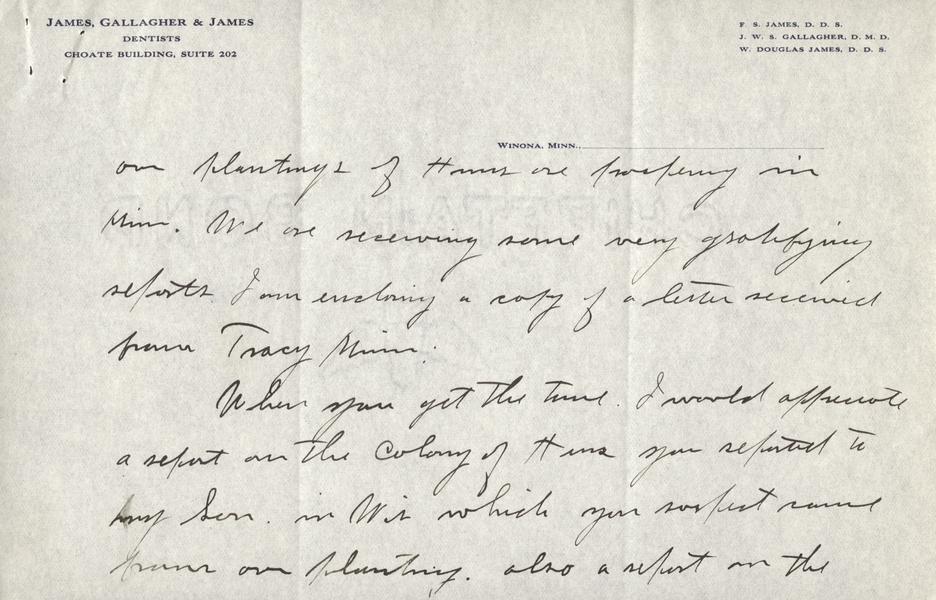 JAMES, GALLAGHER & JAMES
DENTISTS
CHOATE BUILDING, SUITE 202
F. S. JAMES, D. D. S.
J. W. S. GALLAGHER, D. M. D.
W. DOUGLAS JAMES, D. D. S.
WINONA, MINN.,
our plantings of Huns are prospering in
Minn. We are receiving some very gratifying
reports I am enclosing a copy of a letter received
from Tracy Minn.
When you get the time. I would appreciate
a report on the Colony of Huns you reported to
my Son. in Wis which you suspect came
from our planting. also a report on the